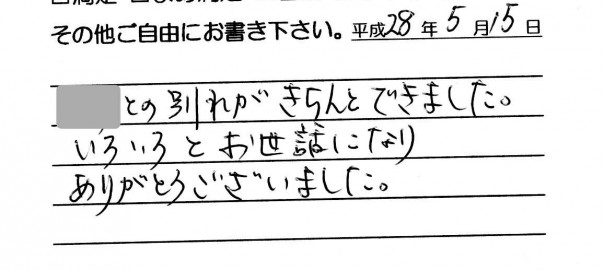 その他ご自由にお書き下さい。平成28年5月15日
との別れがきちんとできました。
いろいろとお世話になり
ありがとうございました。